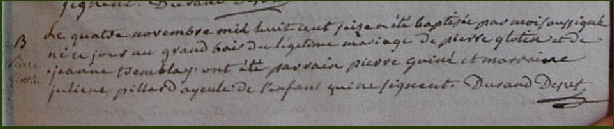 signent. Durand Desset
B
Le quatre novembre mil huit cent seize a été baptisée par moi soussigné
née ce jour au grand bois du légitime mariage de pierre glotin et de
jeanne tremblay. ont été parrain pierre guiné et marraine
juliene pillard ayeule de l'enfant qui ne signent. Durand Desset